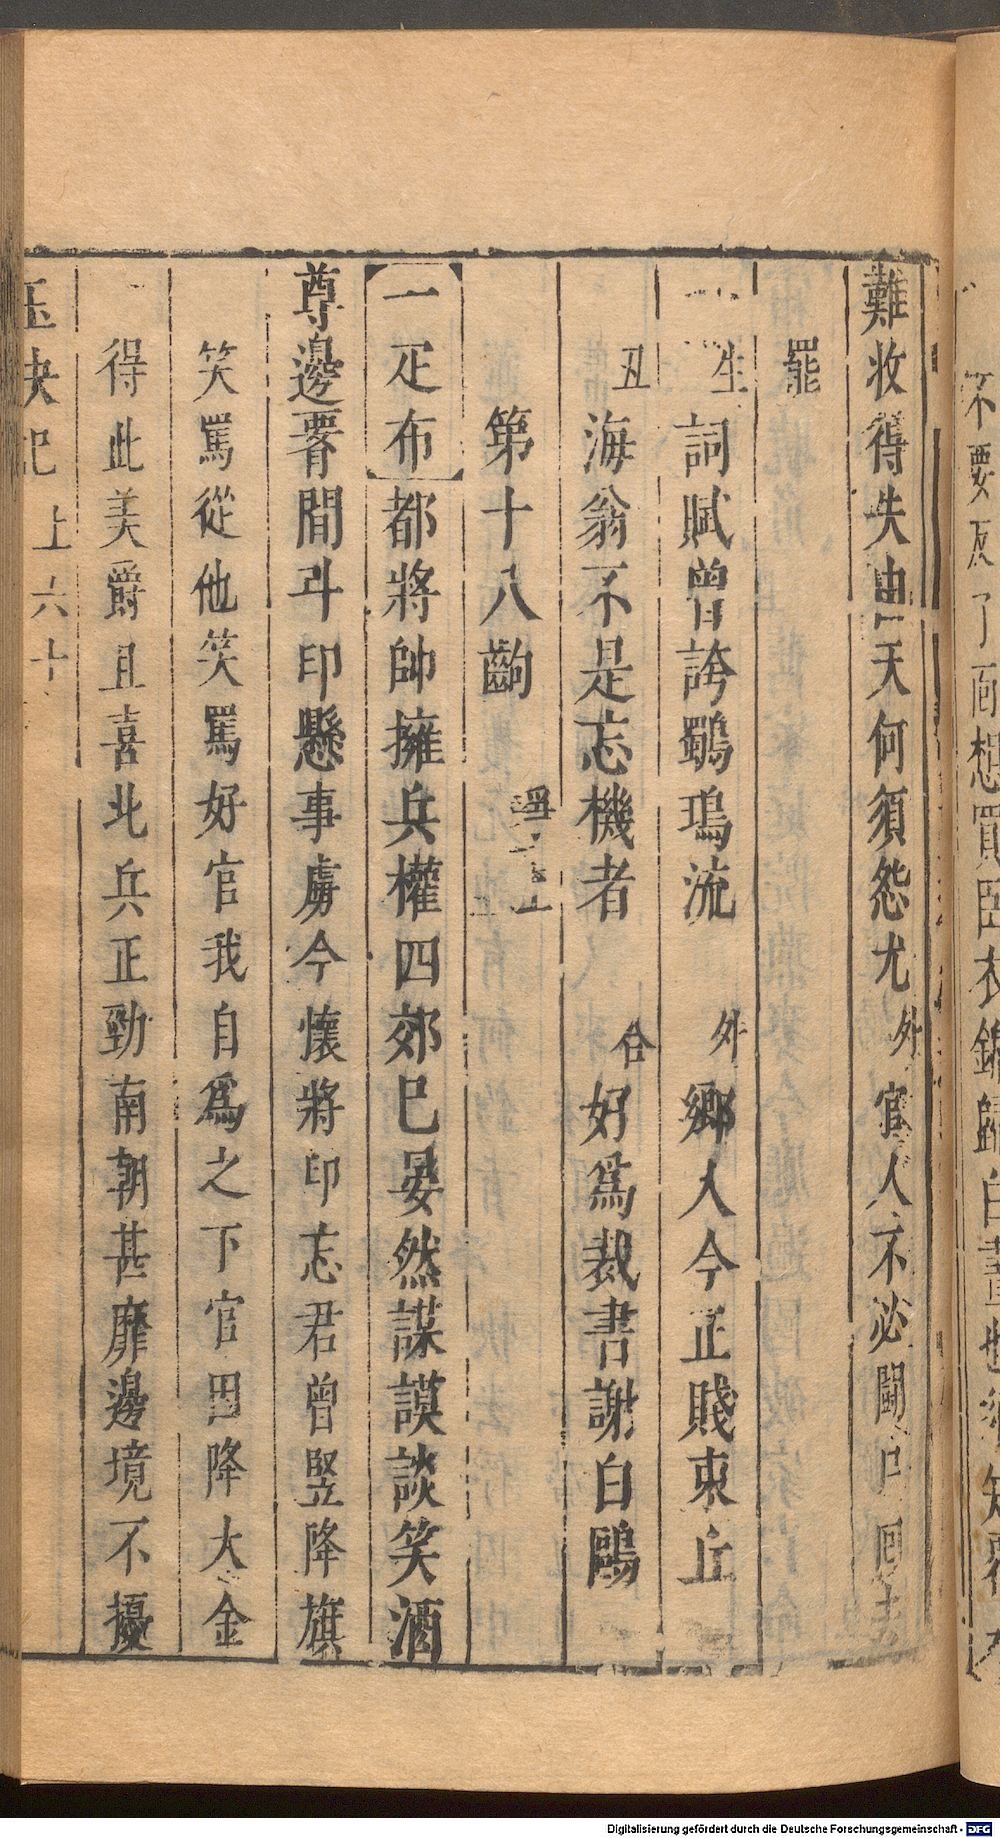 不要
了面想買臣衣錦歸白晝
難收得失由天何須怨尤外官人不必鬧
罷
生詞賦曾誇鸚鵡流外鄉人今正賤東丘
丑海翁不是忘機者合好爲裁書謝白鷗
第十八齣
一疋布都將帥擁兵權四郊已晏然謀謨談笑酒
尊邊要腎間斗印懸事虜今懷將印忘君曾竪降旗
笑罵從他笑罵好官我自爲之下官因降大金
得此美爵且喜北兵正勁南朝甚靡邊境不擾
玉玦記 上 六十
Digitalisierung gefördert durch die Deutsche Forschungsgemeinschaft - DFG